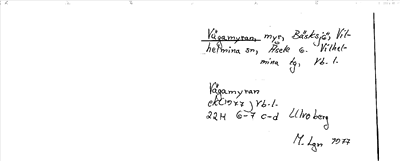 Vågamyran, myr, Bäsksjö, Vil-
helmina sn, Åsele s. Vilhel-
mina tg, Vb. l.
Vågamyran
ekl 1977, Vb. l.
22H 6-7 c-d Ulvoberg
M. Lgn 1977